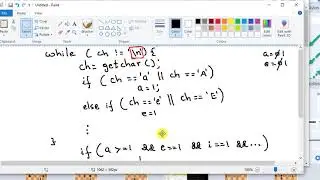 Untitled - Paint
while ( ch != '\n') {
ch= getchar();
if ( ch =='a' || ch =='A')
a=1;
else if ( ch=='e' || ch=='E')
e=1
}
if ( a >=1 && e>=1 && i==1 &&...)
a=0 1
a=0 1